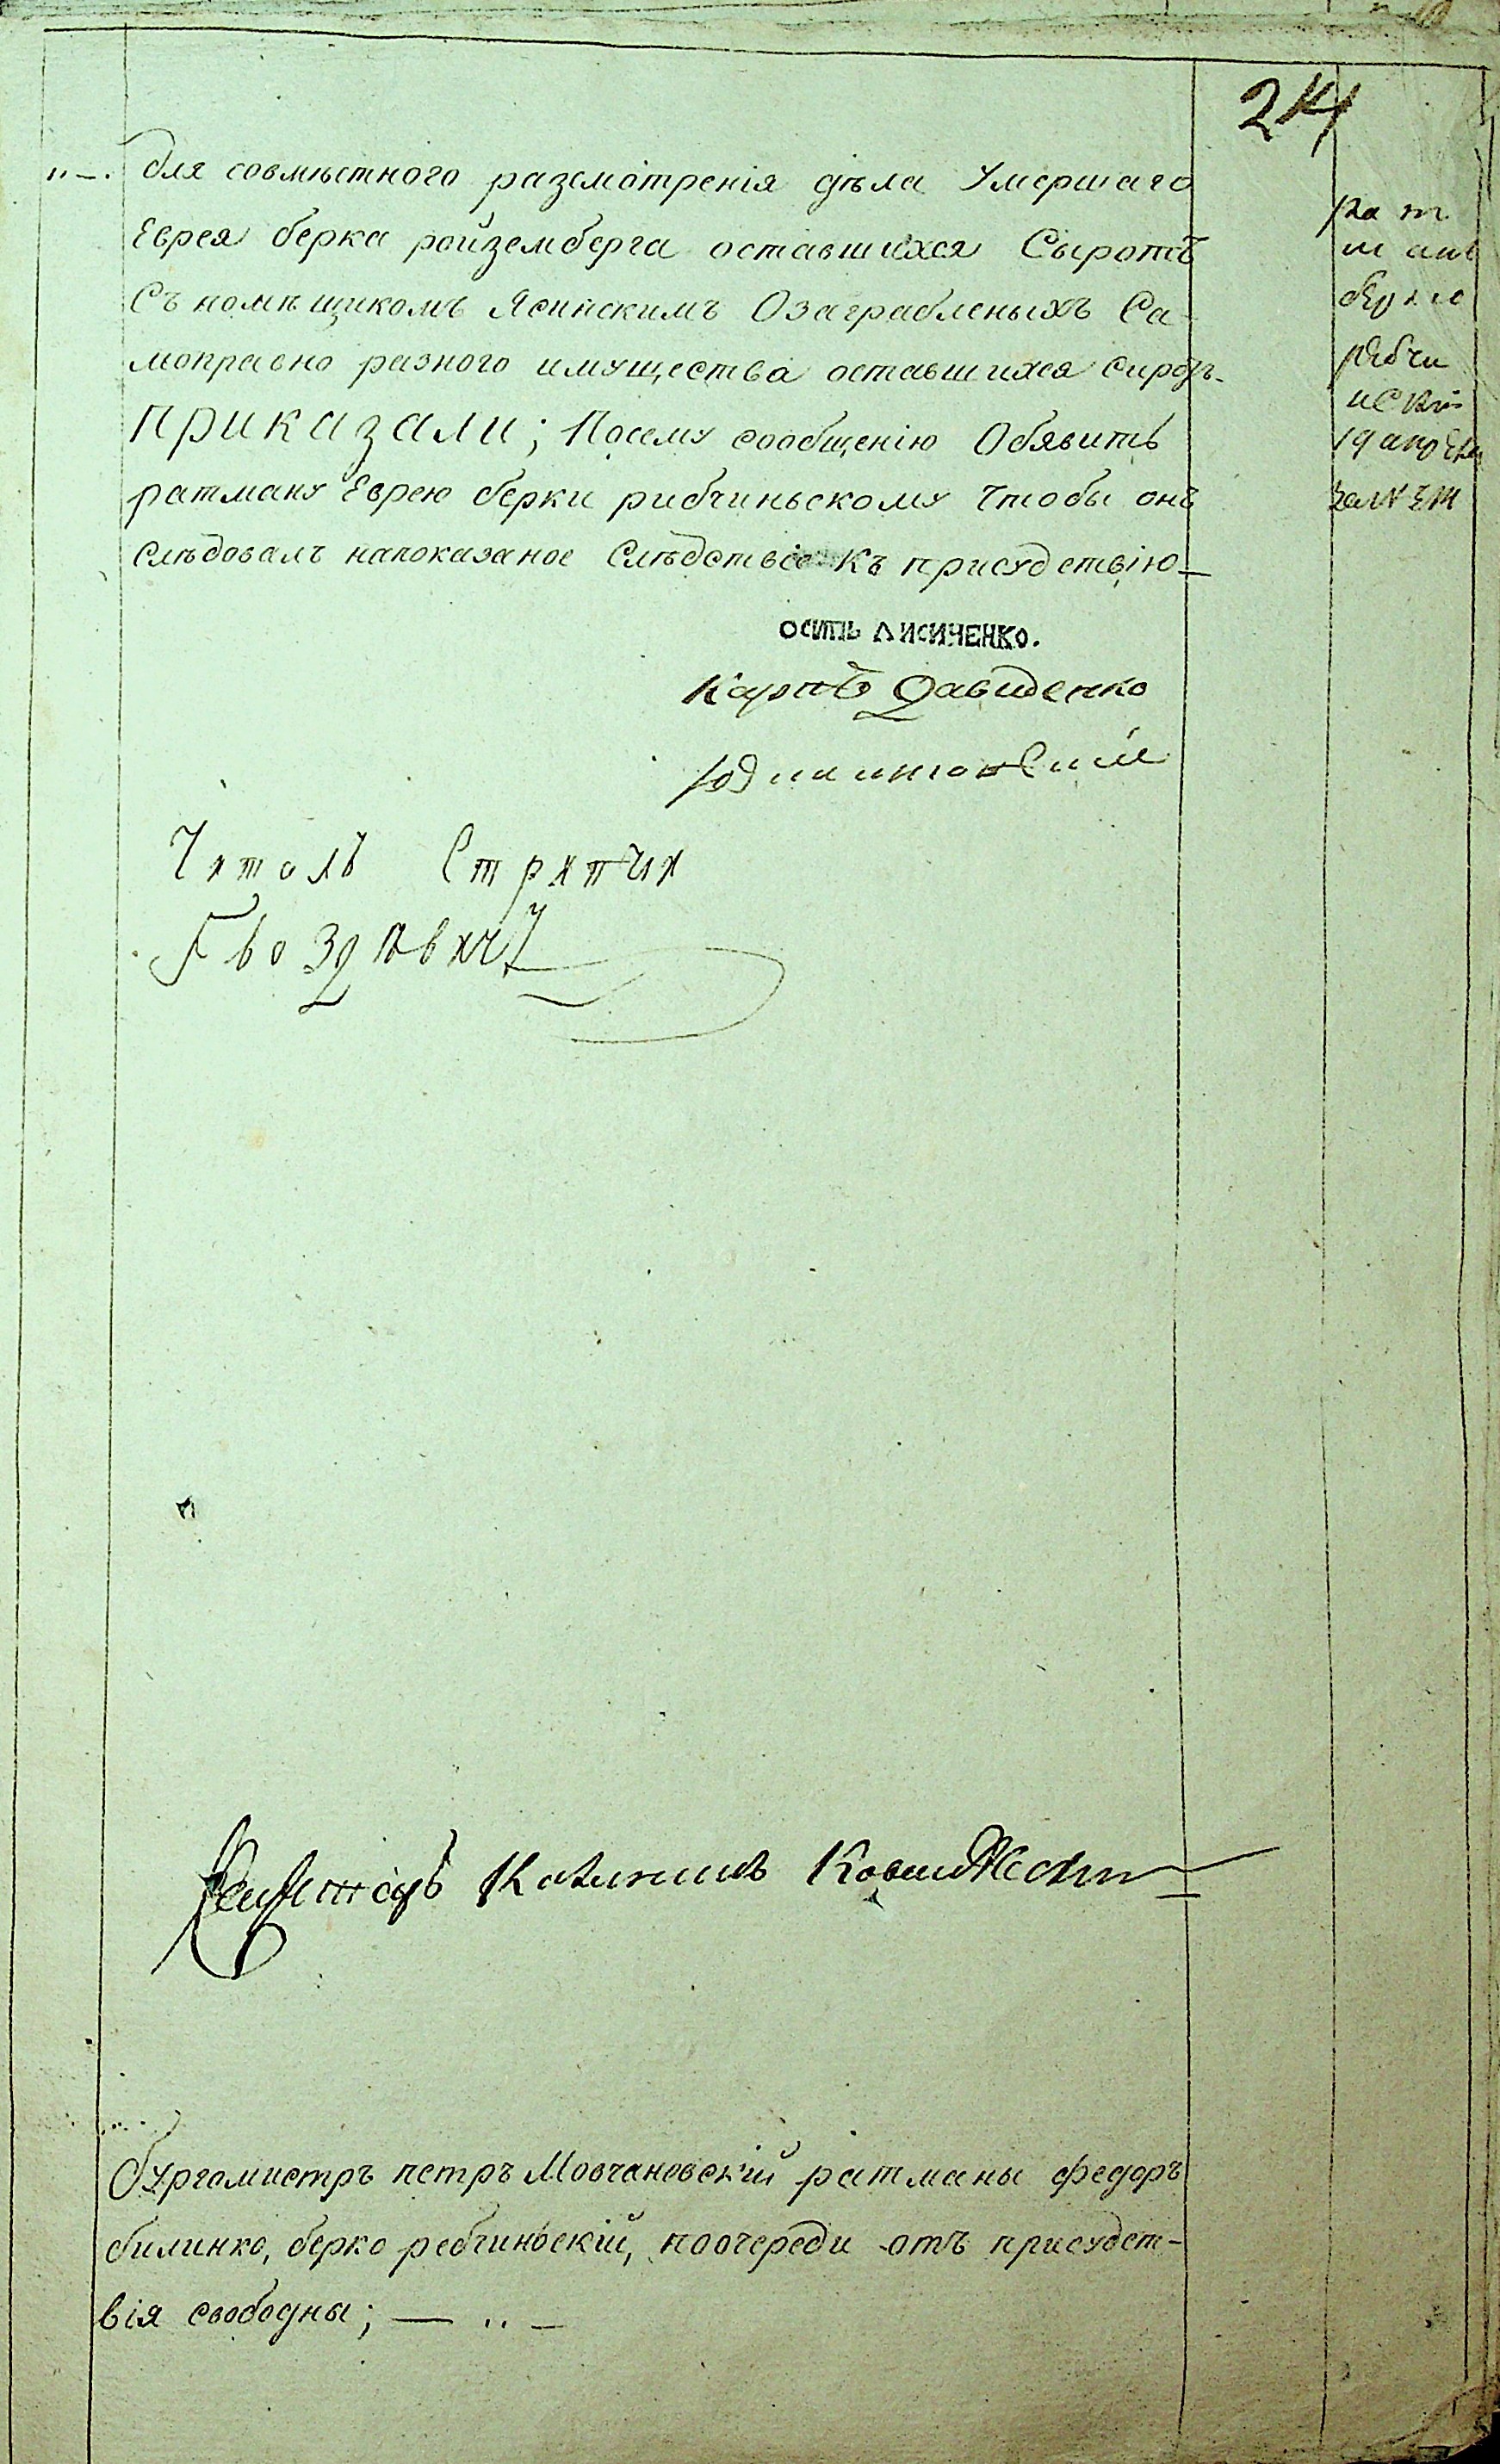 24
для совмѣстного разсмотренія дѣла Умершаго
Еврея берка ройземберга оставшихся Сыротъ
Съ помѣщикомъ Ясинскимъ Озаграбленыхъ Са-
моправно разного имущества оставшихся сиротъ-
приказали; Посему сообщенію Обявить
ратману Еврею берки рибчиньскому Чтобы онъ
Слѣдовалъ напоказаное Слѣдствіе Къ присудствію—
осипъ лисиченко.
Карпъ Давиденко
Читалъ Стряпчи
Гвоздовичъ
рат
манъ
берко
рибчи
нский
19 апреля
Калинникъ
бургомистръ петръ Мовчановскій ратманы федоръ
билинко, берко ребчиньскій, поочереди отъ присудст-
вія свободны; — .. —